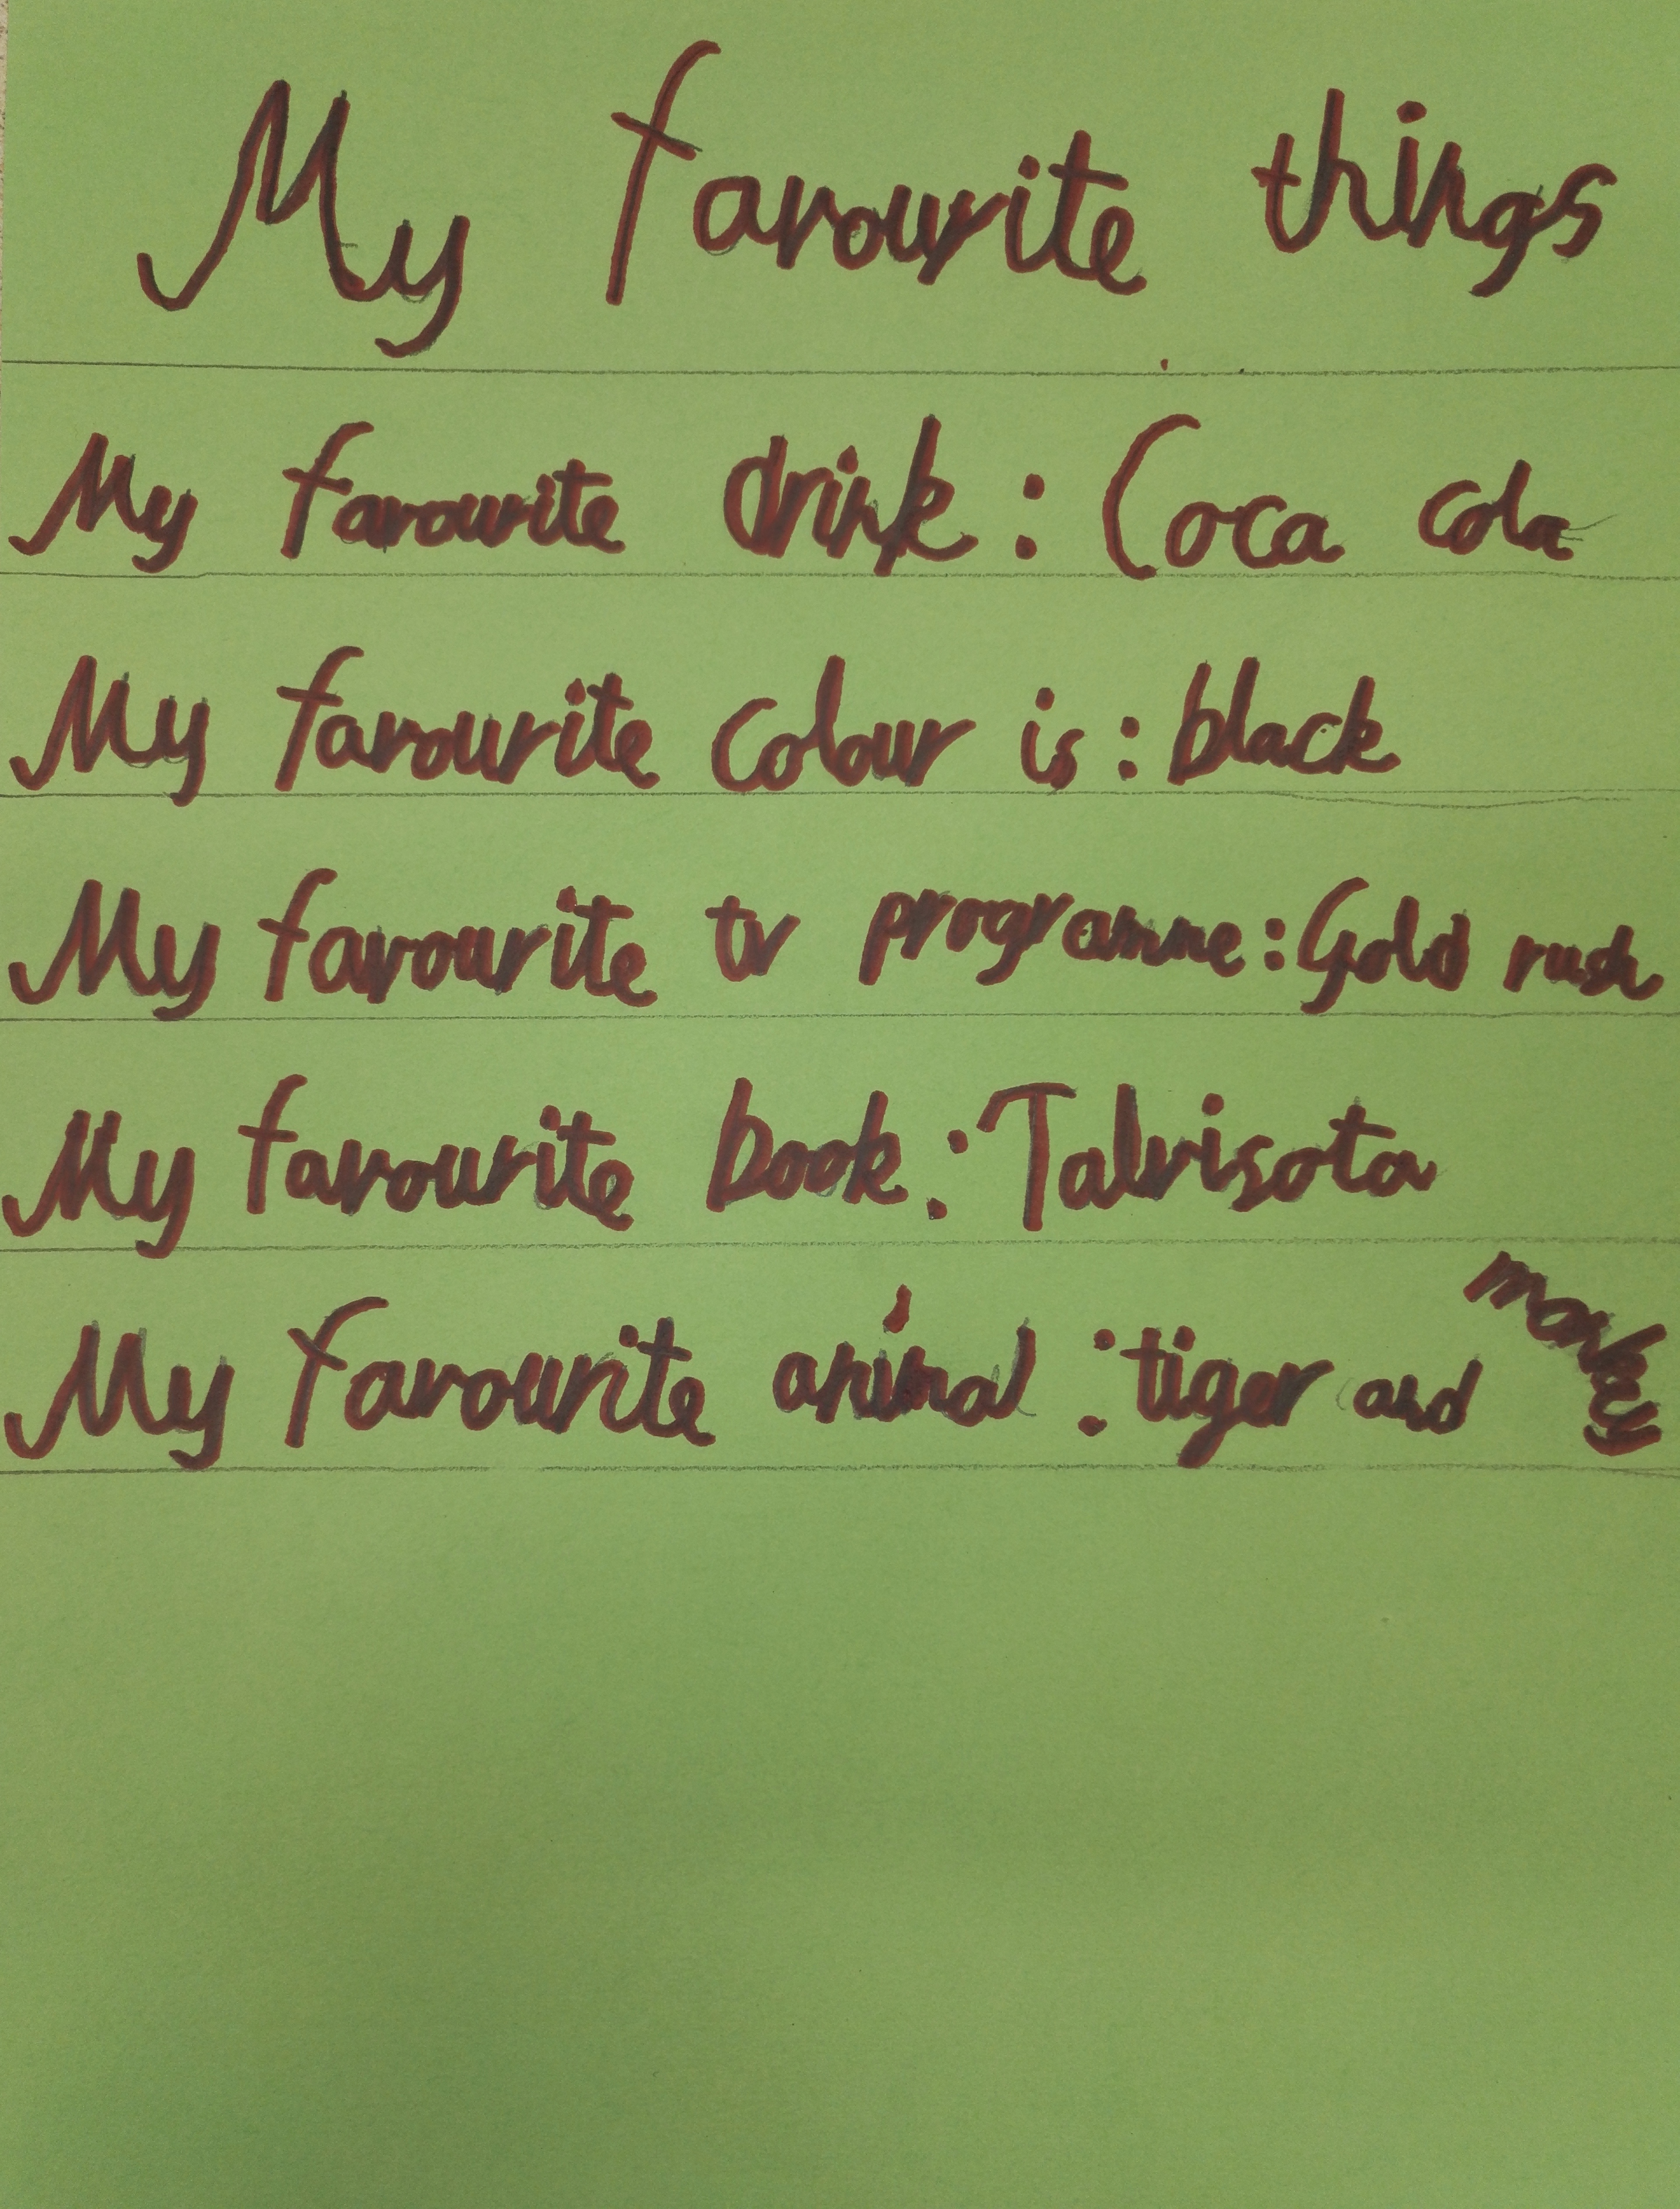 My favourite things
My favourite drink: Coca cola
My favourite colour is: black
My favourite tv programme: Gold rush
My favourite book: Talvisota
My favourite animal: tiger and monkey